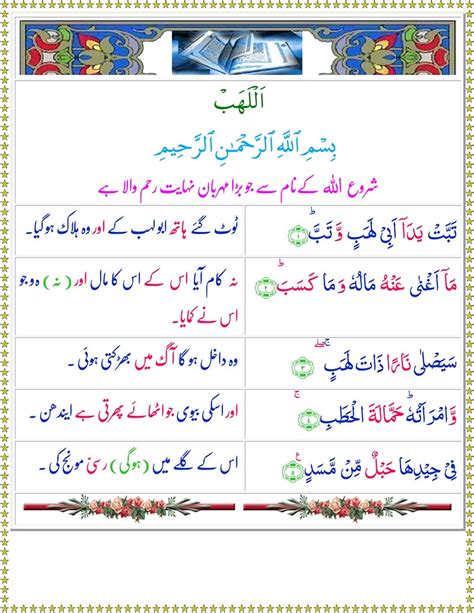 اَللَّهَبْ
بِسْمِ اللهِ الرَّحْمٰنِ الرَّحِيْمِ
شروع اللہ کے نام سے جو بڑا مہربان نہایت رحم والا ہے
تَبَّتْ يَدَآ اَبِىْ لَهَبٍ وَّتَبَّ ؕ ﴿۱﴾
ٹوٹ گئے ہاتھ ابولہب کے اور وہ ہلاک ہوگیا۔
مَاۤ اَغْنٰى عَنْهُ مَالُهٗ وَمَا كَسَبَ ؕ ﴿۲﴾
نہ کام آیا اس کے اس کا مال اور ( نہ ) وہ جو
اس نے کمایا۔
سَيَصْلٰى نَارًا ذَاتَ لَهَبٍ ۖۚ ﴿۳﴾
وہ داخل ہوگا آگ میں بھڑکتی ہوئی ۔
وَّامْرَاَتُهٗ ؕ حَمَّالَةَ الْحَطَبِ ۚ ﴿۴﴾
اور اسکی بیوی جو اٹھائے پھرتی ہے ایندھن ۔
فِىْ جِيْدِهَا حَبْلٌ مِّنْ مَّسَدٍ ﴿۵﴾
اس کے گلے میں (ہوگی) رسیّ مونج کی ۔